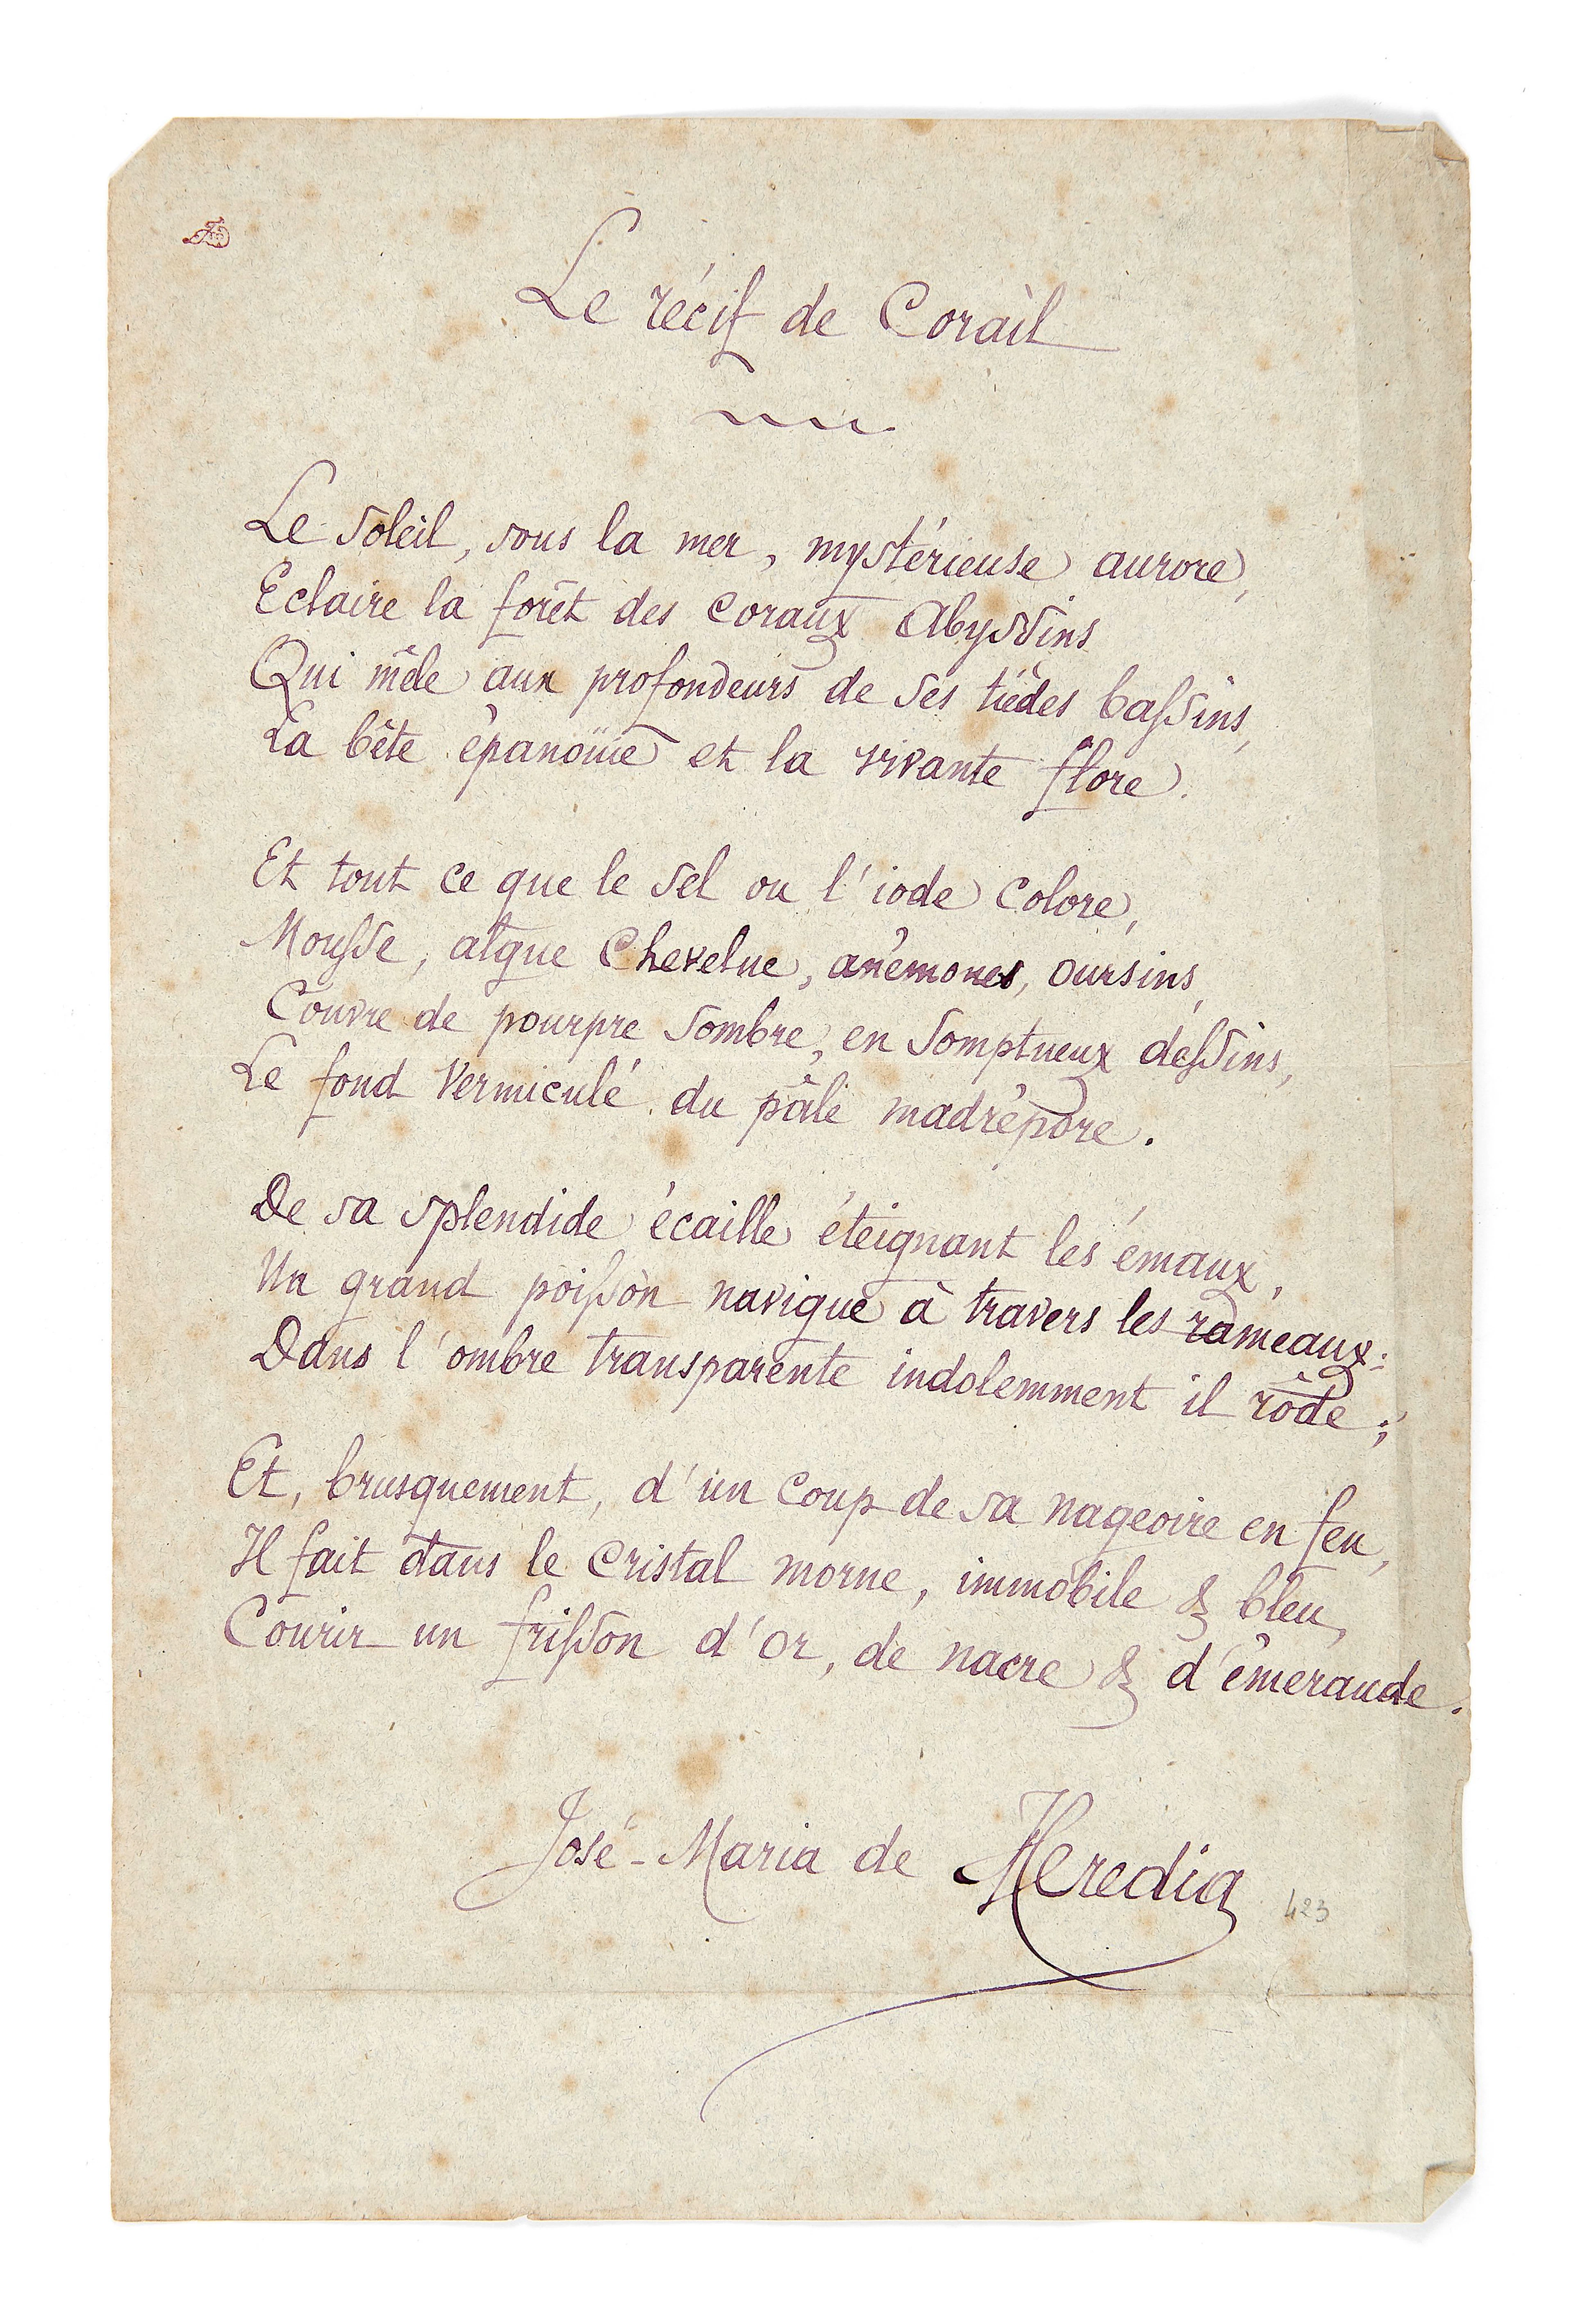 Le récif de Corail
Le Soleil, sous la mer, mystérieuse aurore,
Eclaire la forêt des coraux Abyssins
Qui mêle aux profondeurs de ses tièdes bassins,
La bête épanouïe et la vivante flore.
Et tout ce que le sel ou l'iode colore,
Mousse, algue Chevelue, anémones, oursins,
Couvre de pourpre sombre, en somptueux dessins,
Le fond vermiculé du pâle madrépore.
De sa splendide écaille éteignant les émaux,
Un grand poisson navigue à travers les rameaux:
Dans l'ombre transparente indolemment il rôde;
Et, brusquement, d'un coup de sa nageoire en feu,
Il fait dans le cristal morne, immobile & bleu,
Courir un frisson d'or, de nacre & d'émeraude.
José-Maria de Heredia
423